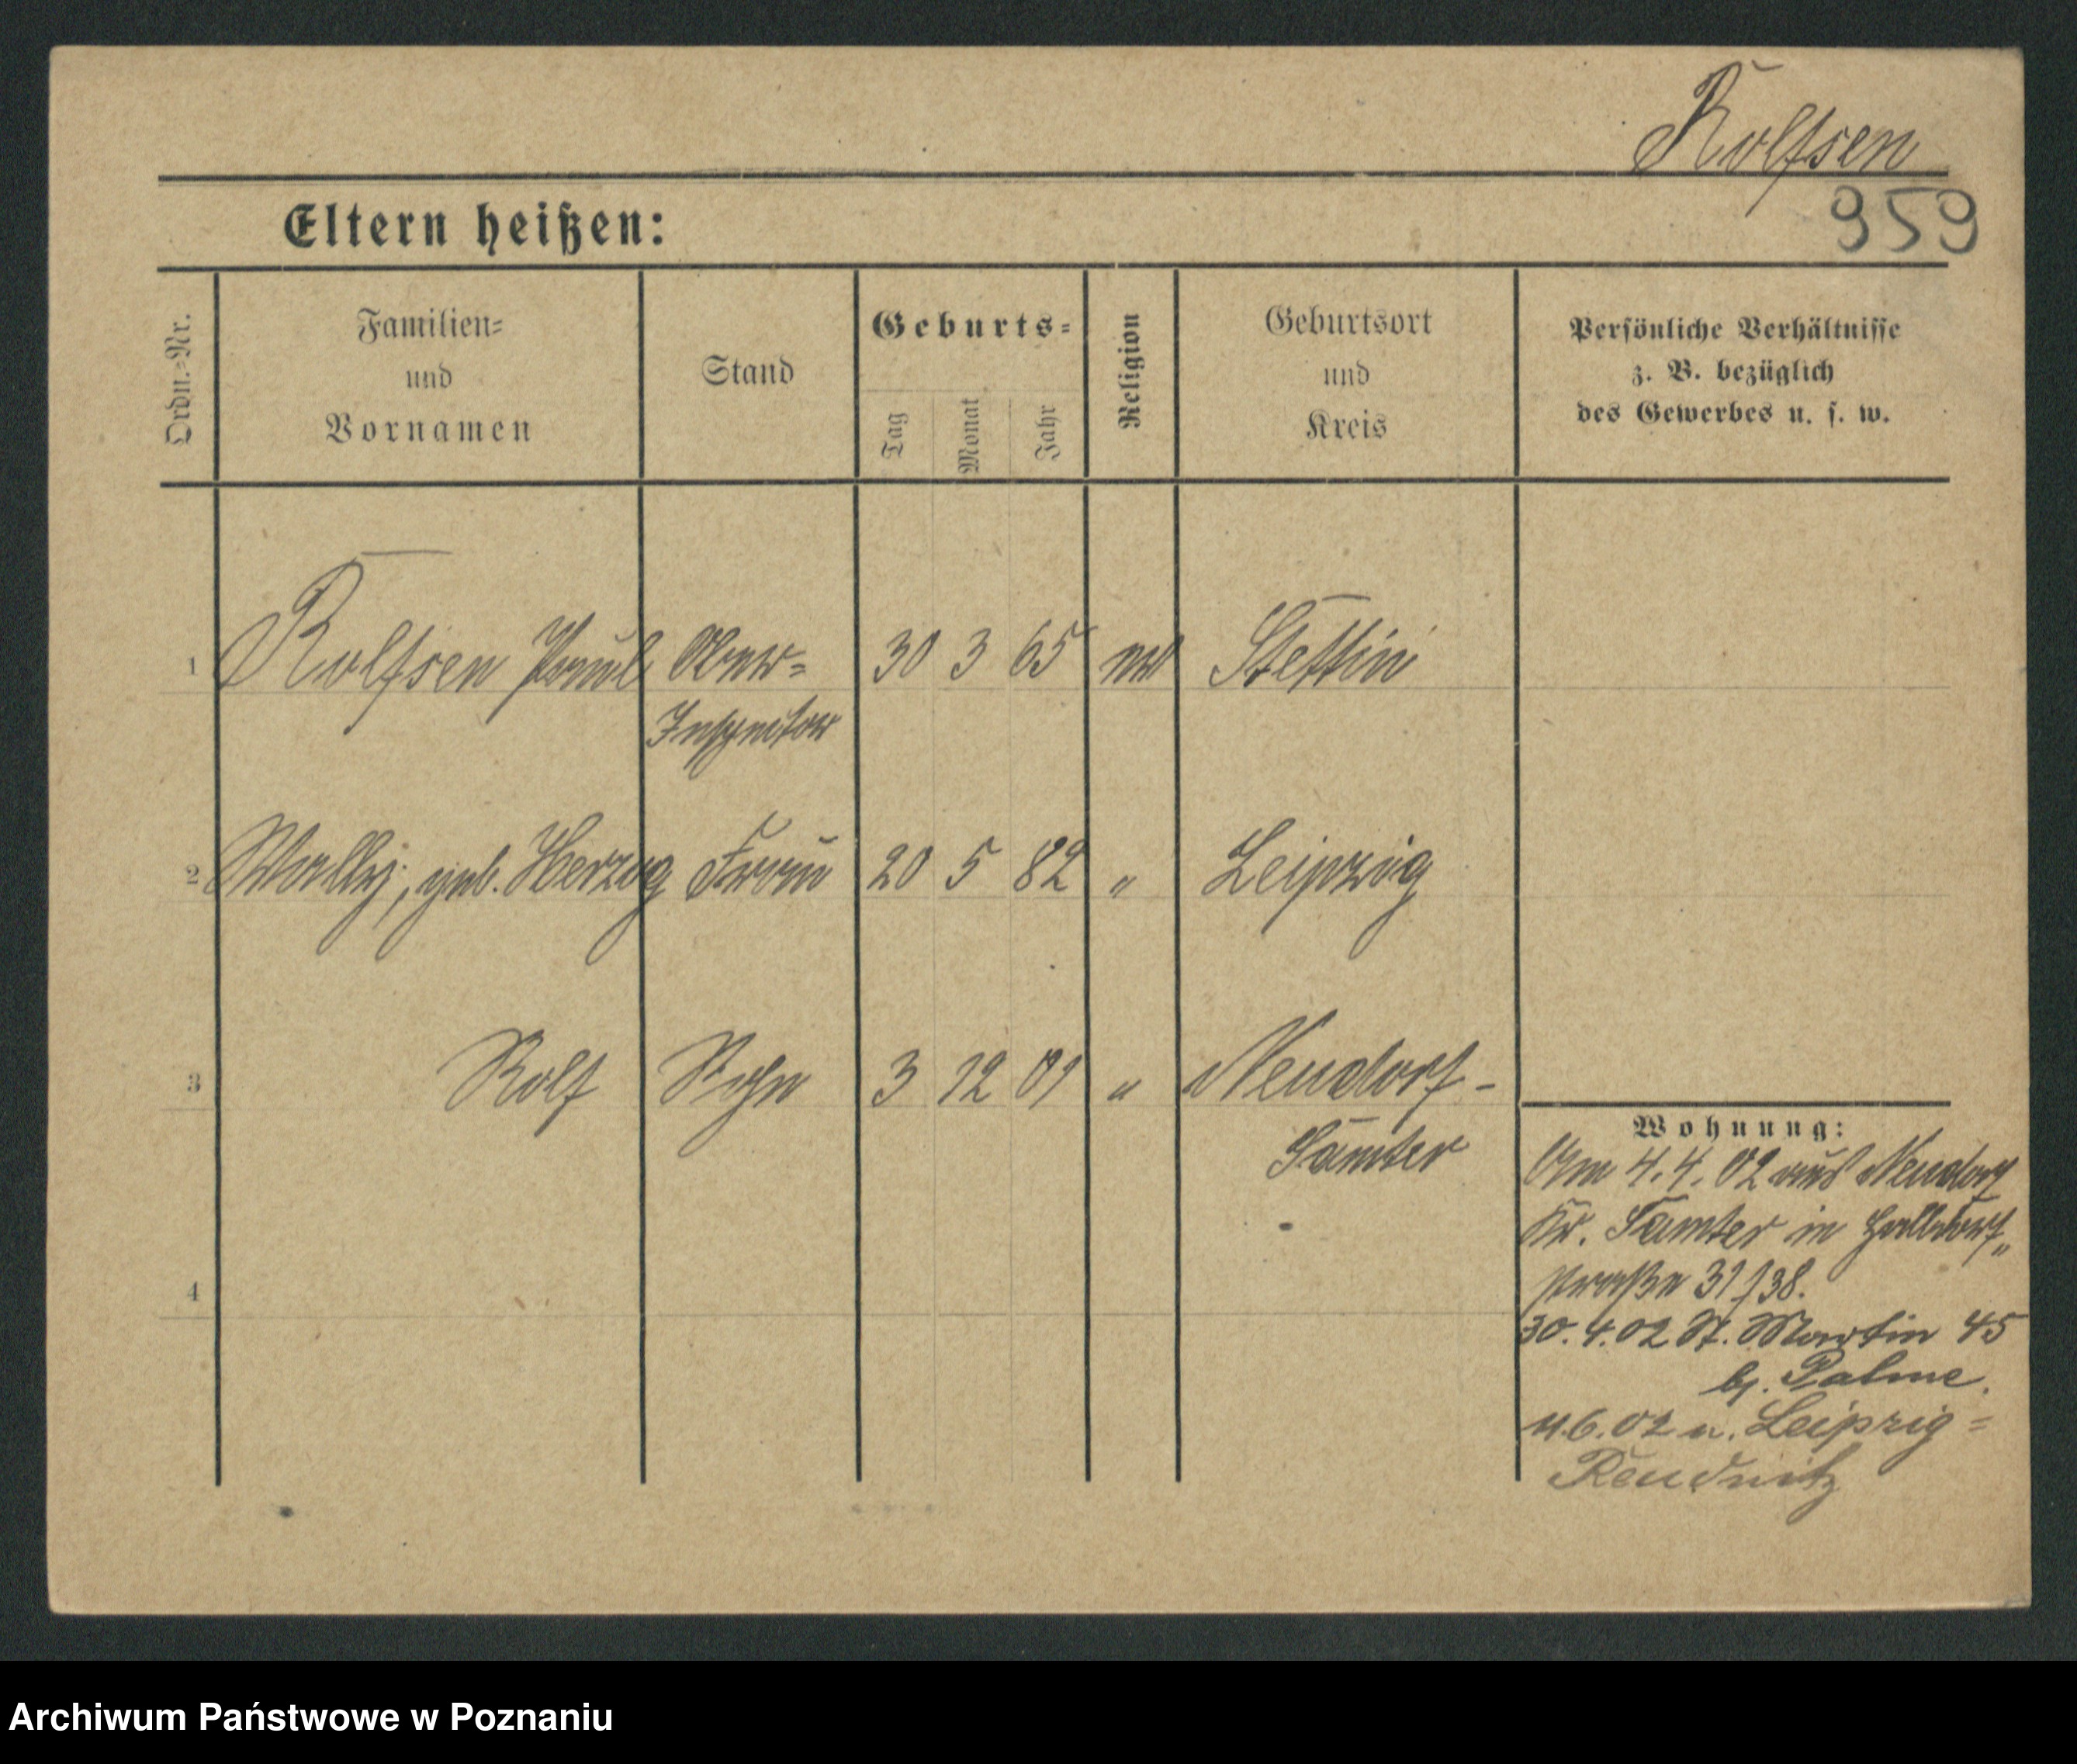 Rolfsen
959
Eltern heißen:
Ordn.=Nr.
Familien=
und
Vornamen
Stand
Geburts=
Tag
Monat
Jahr
Religion
Geburtsort
und
Kreis
Persönliche Verhältnisse
z. B. bezüglich
des Gewerbes u. s. w.
1 Rolfsen Paul Ober= 30 3 65 ev Stettin
Inspektor
2 Wally, geb. Herzog Frau 20 5 82 " Leipzig
3 Rolf Sohn 3 12 01 " Neudorf-
Samter
4
Wohnung:
Am 4.4.02 aus Neudorf
Kr. Samter in
straße 31/38.
30.4.02 St. Martin 45
bj. Palme.
4.6.02 n. Leipzig=
Reudnitz
Archiwum Państwowe w Poznaniu